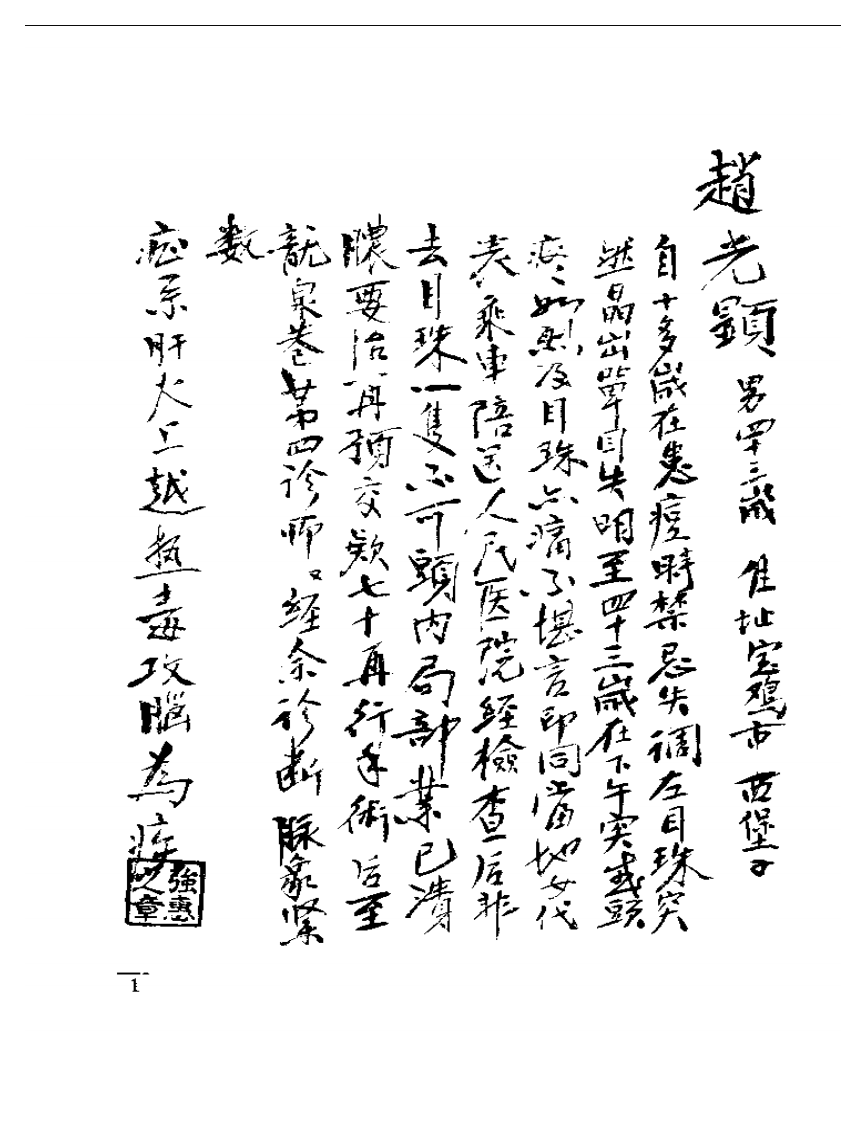 趙光顕 男 四十三歲 住址宝鸡市西堡子
自十多歲在患痘時禁忌失调左目珠突
然晶出單目失明至四十三歲在下午突或頭
疼如烈及目珠亦痛不堪言即同當地女代
表乘車陪送人民医院經檢查后非
去目珠一隻不可頭内局部業已潰
膿要治再預交欵七十再行手術后至
龍泉巷第四诊所經余诊断脉象紧
数
症系肝火上越热毒攻腦為疾
強惠
之章
1